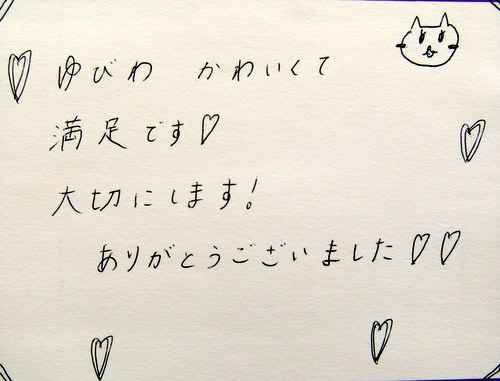 ゆびわ　かわいくて
満足です♡
大切にします!
ありがとうございました♡♡